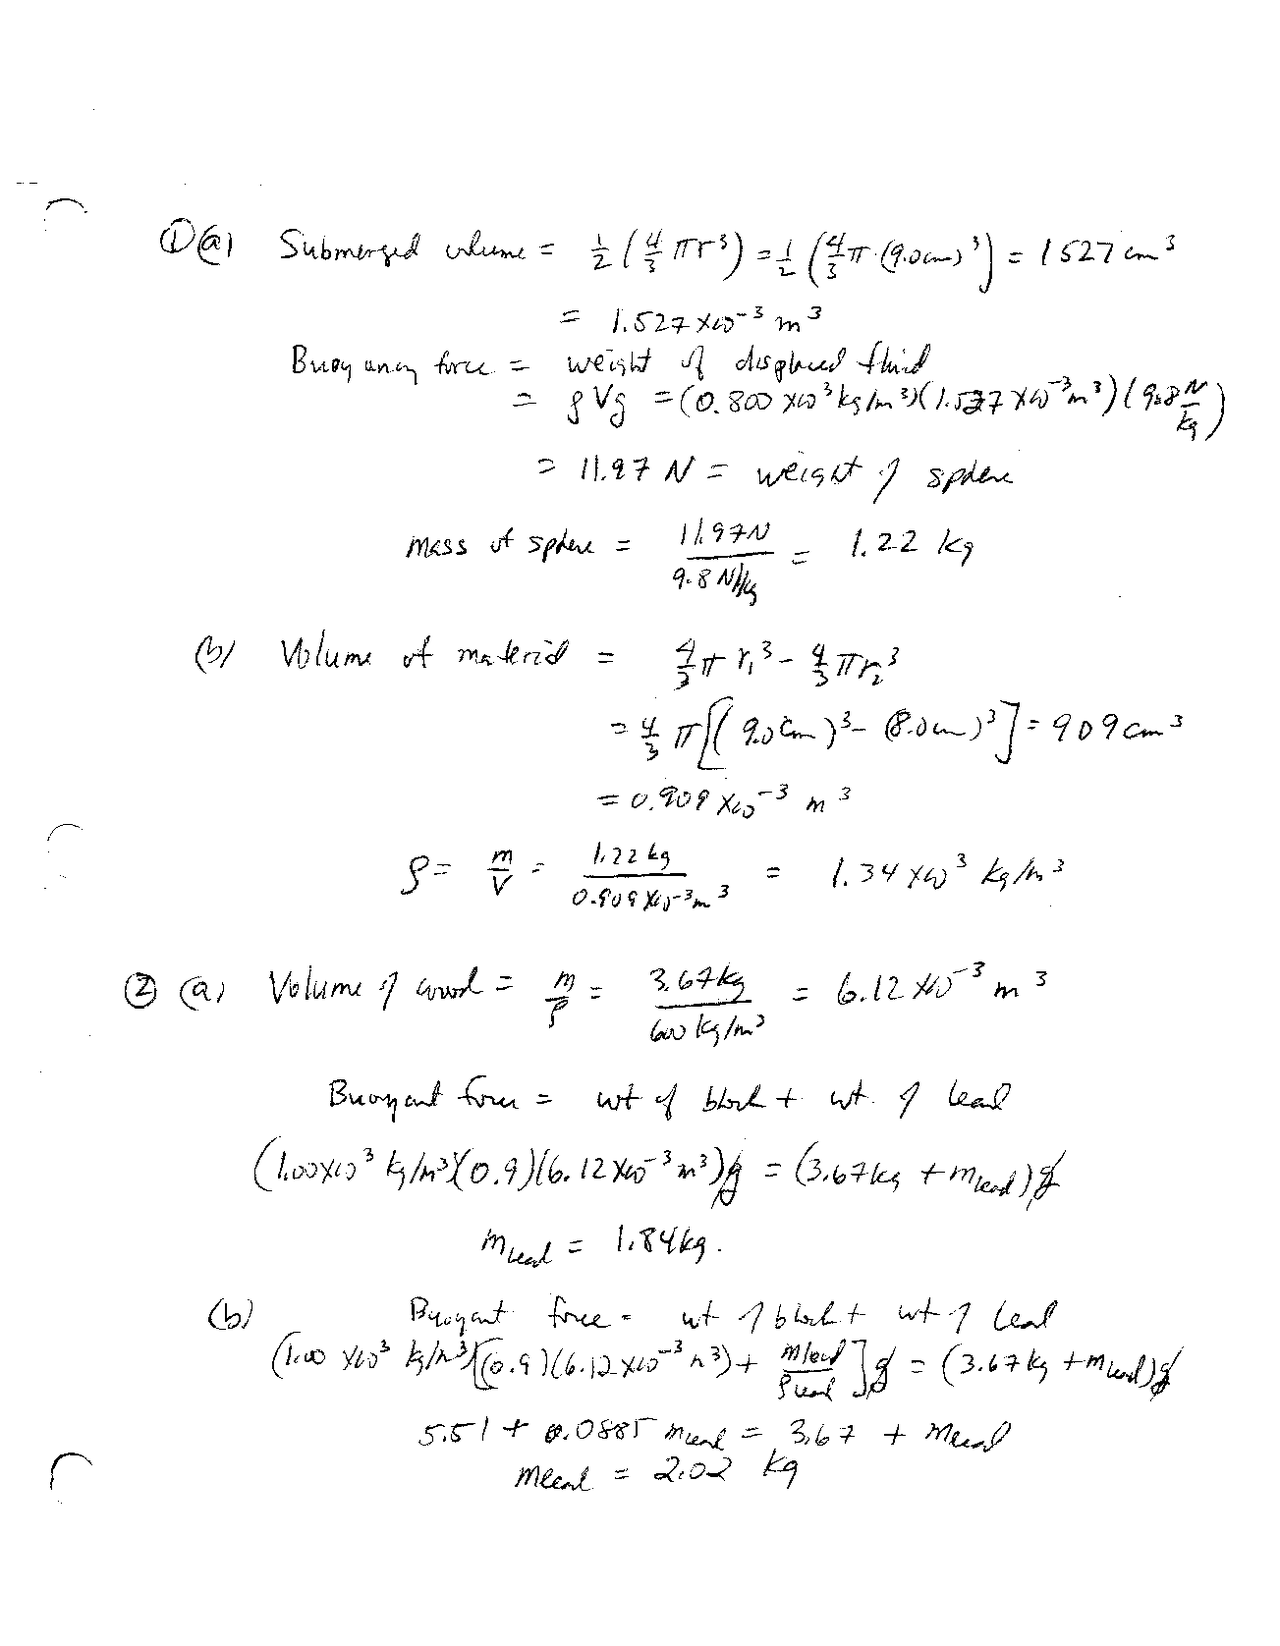 ① (a) Submerged volume = 1/2 (4/3 πr³) = 1/2 (4/3 π (9.0cm)³) = 1527 cm³
= 1.527 ×10⁻³ m³
Buoyancy force = weight of displaced fluid
= ρVg = (0.800 ×10³ kg/m³)(1.527 ×10⁻³ m³)(9.8 N/kg)
= 11.97 N = weight of sphere
mass of sphere = 11.97N / 9.8 N/kg = 1.22 kg
(b) Volume of material = 4/3 π r₁³ - 4/3 π r₂³
= 4/3 π [(9.0cm)³ - (8.0cm)³] = 909 cm³
= 0.909 ×10⁻³ m³
ρ = m/V = 1.22 kg / 0.909 ×10⁻³ m³ = 1.34 ×10³ kg/m³
② (a) Volume of wood = m/ρ = 3.67kg / 600 kg/m³ = 6.12 ×10⁻³ m³
Buoyant force = wt of block + wt. of lead
(1.00×10³ kg/m³)(0.9)(6.12 ×10⁻³ m³)g = (3.67kg + mlead)g
mlead = 1.84kg.
(b) Buoyant force = wt of block + wt of lead
(1.00 ×10³ kg/m³)[(0.9)(6.12×10⁻³ m³) + mlead/ρlead]g = (3.67kg + mlead)g
5.51 + 0.0885 mlead = 3.67 + mlead
mlead = 2.02 kg